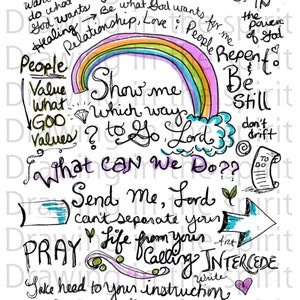 want to
do what
God wants
Be what God wants for me
Healing
Relationship, Love & People
IN
the
power
of God
Repent
& Be
Still
don't
drift
People
Value
what
GOD
Values
Show me
which way
? to Go Lord
TO DO
What CAN We Do??
Send Me, Lord
can't separate your
Life from your
Calling
PRAY
fret
INTERCEDE
Write
Take heed to your instruction
Drawing in the spirit